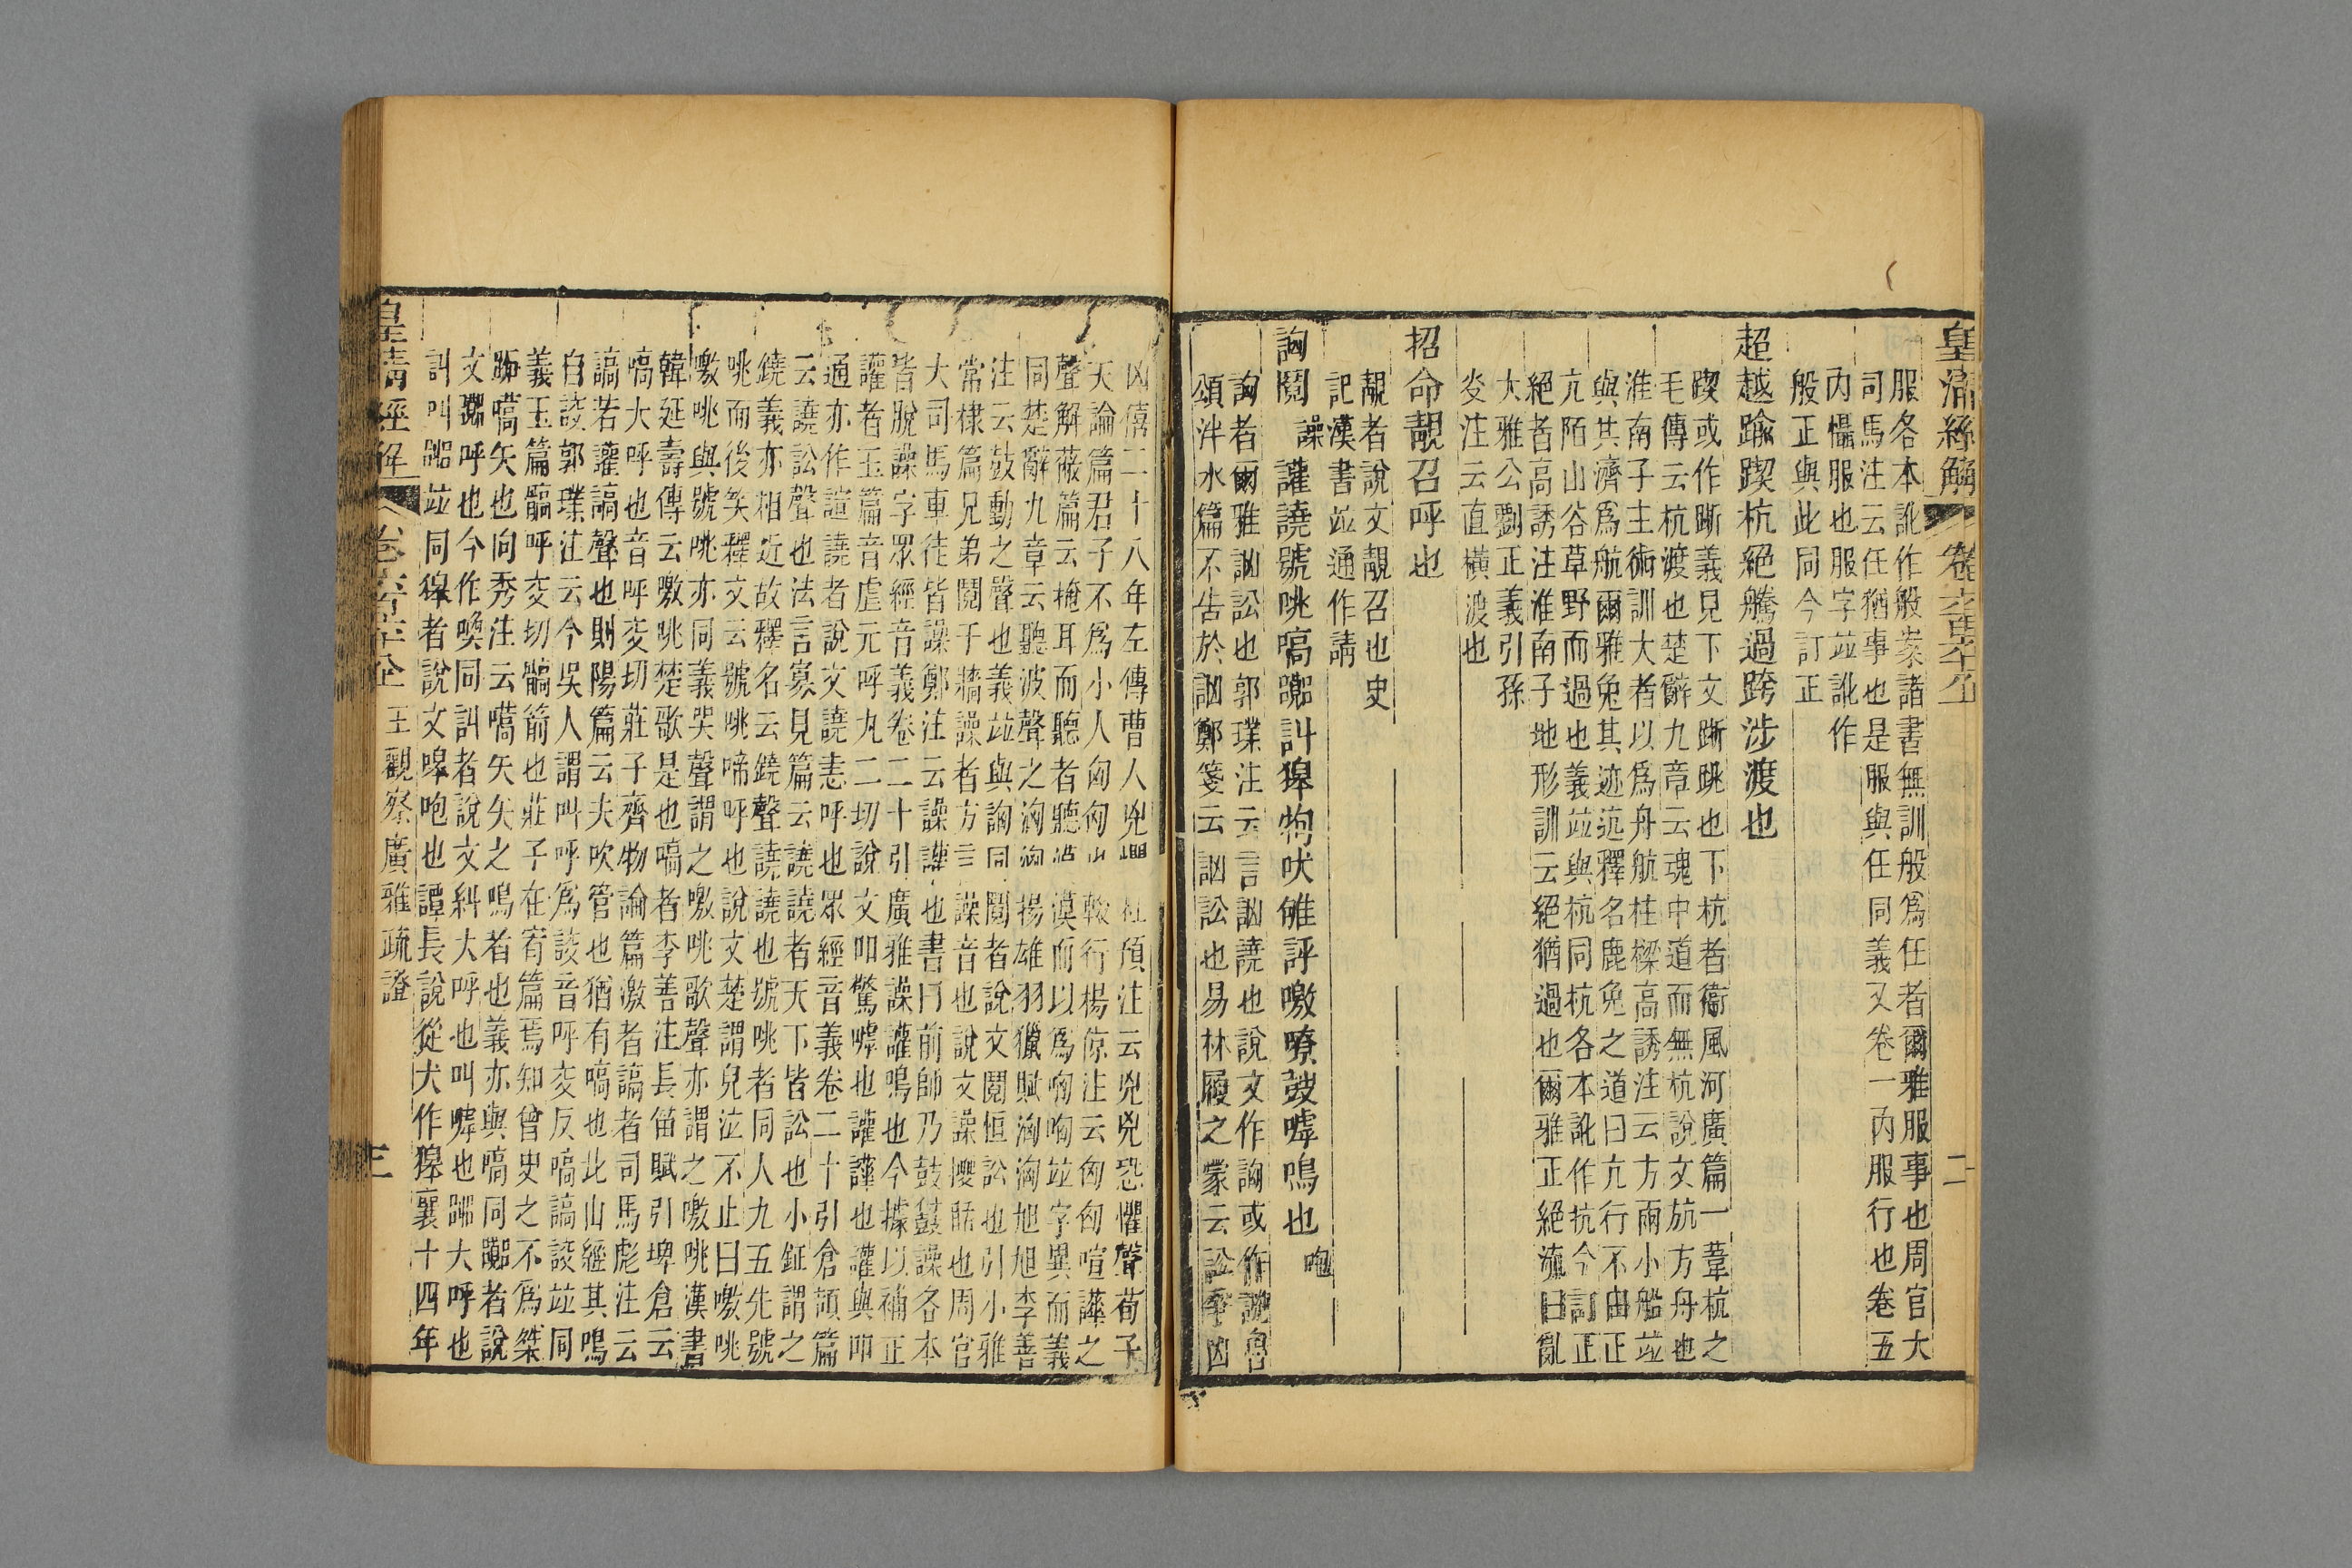 皇清經解
服各本訛作般案諸書無訓般為任者爾雅服事也周官大
司馬注云任猶事也是服與任同義又卷一內服行也卷五
內懾服也服字竝訛作
般正與此同今訂正
超越踰䠍杭絕騰過跨涉渡也
䠍或作䟢義見下文䟢跳也下杭者衞風河廣篇一葦杭之
毛傳云杭渡也楚辭九章云魂中道而無杭說文斻方舟也
淮南子主術訓大者以為舟航柱樑高誘注云方兩小船竝
與其濟為航爾雅兔其迹迒釋名鹿兔之道曰亢行不由正
亢陌山谷草野而過也義竝與杭同杭各本訛作抗今訂正
絕者高誘注淮南子地形訓云絕猶過也爾雅正絕流曰亂
大雅公劉正義引孫
炎注云直橫渡也
招命靚召呼也
靚者說文靚召也史
記漢書竝通作請
詾鬩譟讙譊號咷嗃嘂叫獋狗吠雊評噭嘹鼓嘑鳴也
詾者爾雅訩訟也郭璞注云言訩譊也說文作詾或作說魯
頌泮水篇不告於訩鄭箋云訩訟也易林履之蒙云訟爭凶
凶僖二十八年左傳曹人兇懼杜預注云兇兇恐懼聲荀子
天論篇君子不為小人匈匈也輟行楊倞注云匈匈喧譁之
聲解蔽篇云掩耳而聽者聽漠漠而以為啕啕竝字異而義
同楚辭九章云聽波聲之洶洶揚雄羽獵賦洶洶旭旭李善
注云鼓動之聲也義竝與詾同鬩者說文鬩恒訟也引小雅
常棣篇兄弟鬩于牆譟者方言譟音也說文譟擾聒也周官
大司馬車徒皆譟鄭注云譟讙也書曰前師乃鼓𪔛譟各本
皆脫譟字眾經音義卷二十引廣雅譟讙鳴也今據以補正
讙者玉篇音虛元呼九二切說文吅驚嘑也讙譁也讙與吅
通亦作諠譊者說文譊恚呼也眾經音義卷二十引倉頡篇
云譊訟聲也法言寡見篇云譊譊者天下皆訟也小鉦謂之
鐃義亦相近故釋名云鐃聲譊譊也號咷者同人九五先號
咷而後笑釋文云號咷啼呼也說文楚謂兒泣不止曰噭咷
噭咷與號咷亦同義哭聲謂之噭咷歌聲亦謂之噭咷漢書
韓延壽傳云噭咷楚歌是也嗃者李善注長笛賦引埤倉云
嗃大呼也音呼交切莊子齊物論篇激者謞者司馬彪注云
謞若讙謞聲也則陽篇云夫吹管也猶有嗃也北山經其鳴
自詨郭璞注云今吳人謂叫呼為詨音呼交反嗃謞詨竝同
義玉篇髇呼交切髇箭也莊子在宥篇焉知曾史之不為桀
跖嚆矢也向秀注云嚆矢矢之鳴者也義亦與嗃同嘂者說
文嘂呼也今作喚同訆者說文糾大呼也叫嘑也嘂大呼也
訆叫嘂竝同獋者說文嗥咆也譚長說從犬作獋襄十四年
皇清經解　王觀察廣雅疏證
二
三